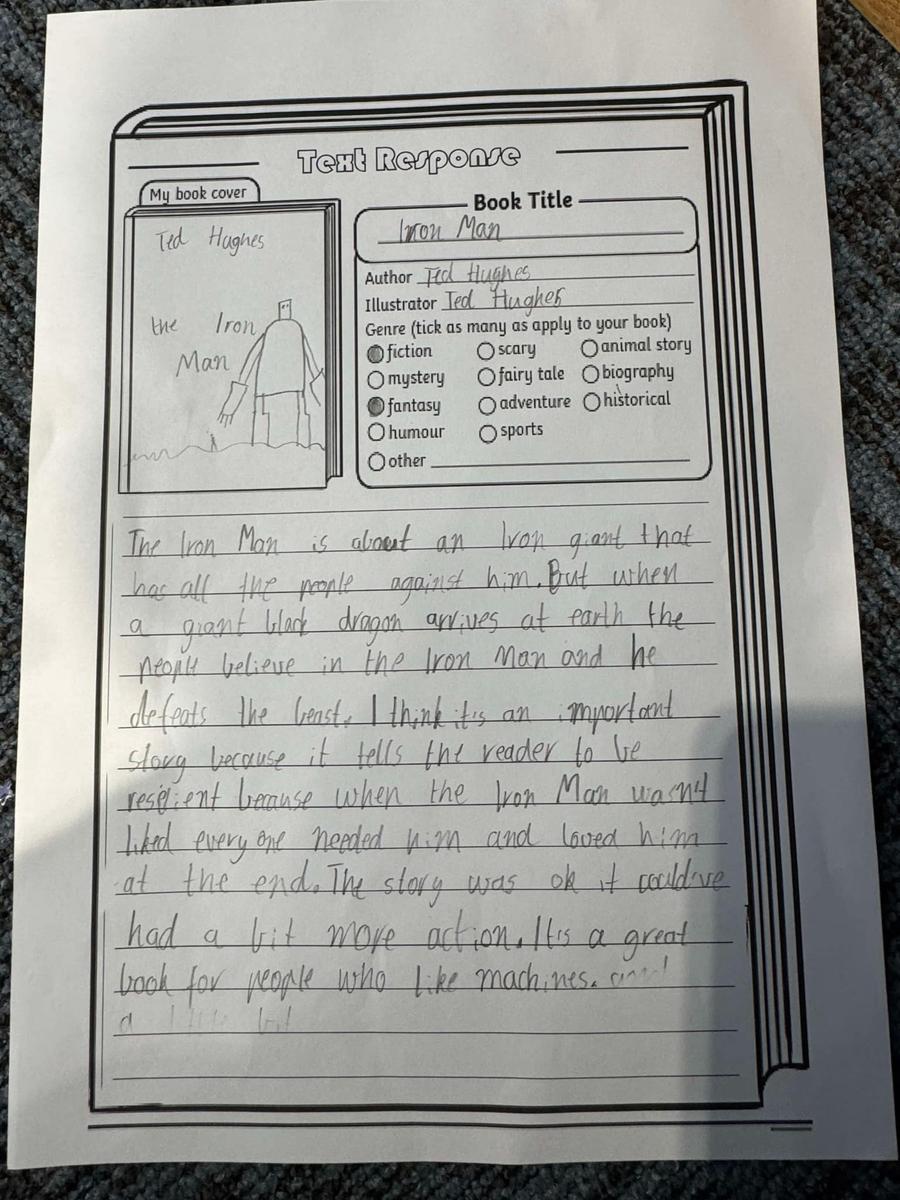 Text Response
My book cover
Ted Hughes
the Iron
Man
Book Title
Iron Man
Author Ted Hughes
Illustrator Ted Hughes
Genre (tick as many as apply to your book)
fiction
scary
animal story
mystery
fairy tale
biography
fantasy
adventure
historical
humour
sports
other
The Iron Man is about an Iron giant that
has all the people against him. But when
a giant black dragon arrives at earth the
people believe in the Iron Man and he
defeats the beast. I think it's an important
story because it tells the reader to be
resilient because when the Iron Man wasn't
liked everyone needed him and loved him
at the end. The story was ok it could've
had a bit more action. It's a great
book for people who like machines. and
a little bit